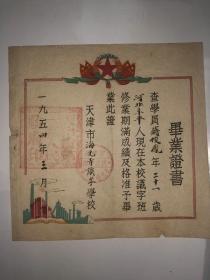 畢業證書
查學員 年二十一歲
河北 人現在本校識字班
修業期滿成績及格准予畢
業此證
天津市 學校
一九五四年三月